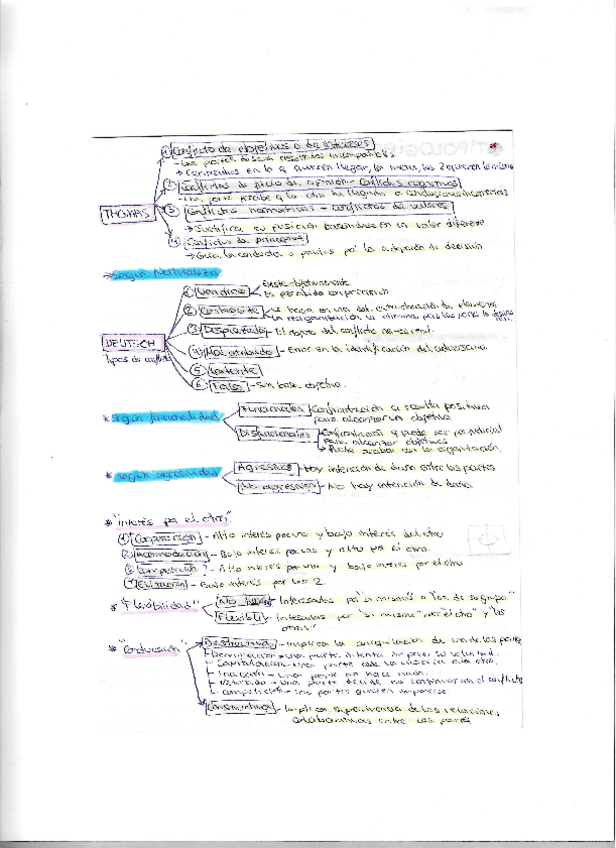 ① Conflicto de objetivos o de intereses
- Las partes buscan resultados incompatibles
→ Centrados en lo q quieren llegar, la meta, los 2 quieren lo mismo
② Conflictos de juicio de opinión = Conflictos cognitivos
- Una parte percibe q la otra ha llegado a conclusiones incorrectas
THOMAS
③ Conflictos normativos - conflictos de valores
→ Justifica su posición basándose en un valor diferente
④ Conflictos de
→ Guía la conducta o por la adopción de decisión
→ Según Naturaleza
① Verídico
Existe objetivamente
Es percibido con precisión
② Contingente
③ Desplazado - El objeto del conflicto no es real.
DEUTSCH
Tipos de conflicto
④ Mal atribuido - Error en la identificación del adversario.
⑤ Latente
⑥ Falso - Sin base objetiva.
* Según funcionalidad
Funcionales - Confrontación q resulta positiva
para alcanzar un objetivo
Disfuncionales - Confrontación q puede ser perjudicial
para alcanzar objetivos
→ Puede acabar con la organización.
* Según agresividad
Agresivos - Hay intención de daño entre las partes
No agresivos - No hay intención de daño.
* "Interés por el otro"
① - Alto interés por uno y bajo interés del otro
② Acomodación - Bajo interés por uno y alto por el otro.
③ Competición - Alto interés por uno y bajo interés por el otro
④ Evitación - Bajo interés por los 2.
* "Flexibilidad"
- Interesados por "sí mismos" o "los de su grupo"
Flexible - interesados por "sí mismo", "por el otro" y "los
otros"
* "Conclusión"
Destructiva - Implica la de una de las partes
- Dominación - Una parte intenta imponer su voluntad.
- Capitulación - Una parte cede la victoria a la otra.
- Inacción - Una parte no hace nada.
- Retirada - Una parte decide no continuar con el conflicto
- Competición - Las partes quieren imponerse.
Constructiva - Implica supervivencia de las relaciones
colaborativas entre las partes